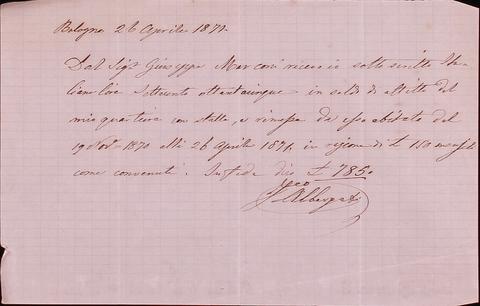 Bologna 26 Aprile 1871.
Dal Sig.r Giuseppe Marconi ricevo io sotto scritto Ita-
liane Lire Settecento ottantacinque in saldo di affitto del
mio quartiere con stalla, e rimessa da esso abitato dal
19 Nov.e 1870 alli 26 Aprile 1871, in ragione di £ 150 mensili
come convenuti. In fede dico £ 785.
Albergati